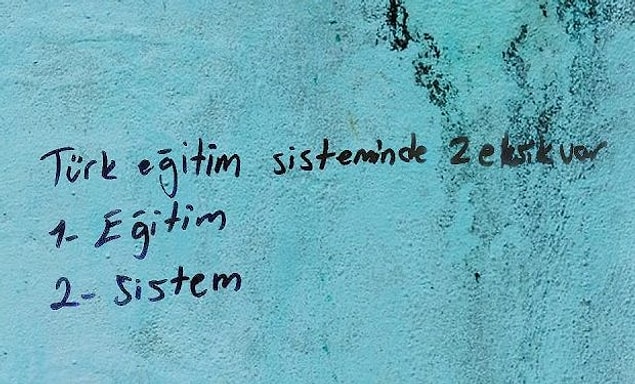 Türk eğitim sisteminde 2 eksik var
1- Eğitim
2- Sistem